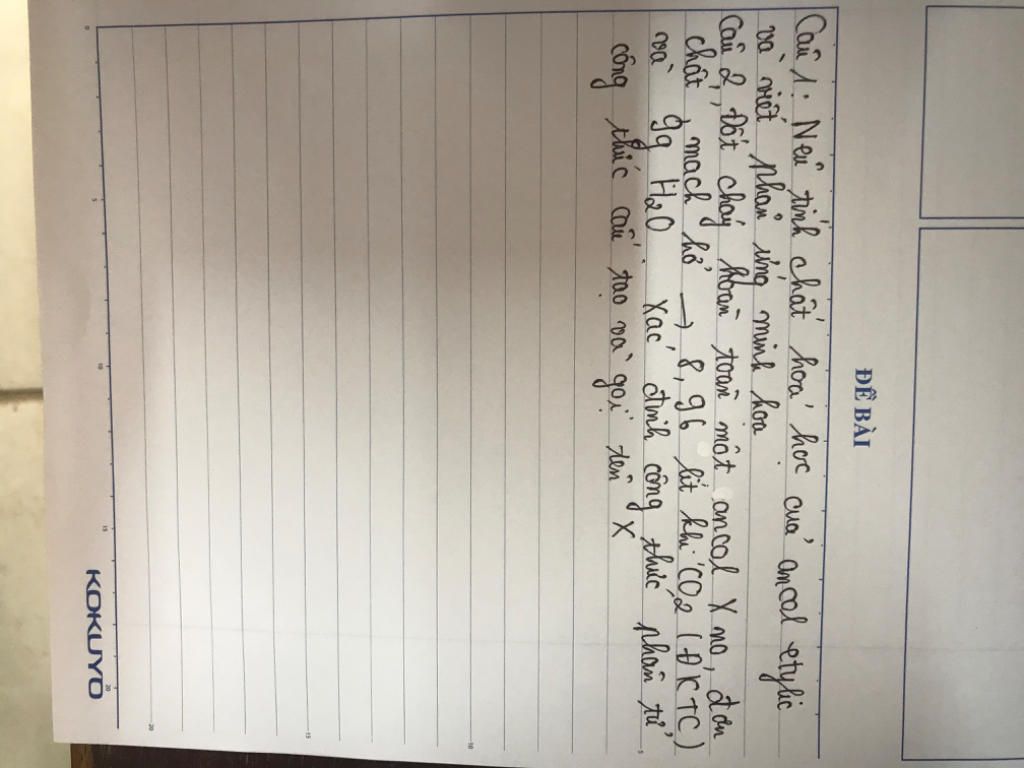 ĐỀ BÀI
Câu 1: Nêu tính chất hoá học của ancol etylic
và viết phản ứng minh hoạ
Câu 2, Đốt cháy hoàn toàn một ancol X no, đơn
chất, mạch hở → 8,96 lít khí CO2 (ĐKTC)
và 9g H2O Xác định công thức phân tử
công thức cấu tạo và gọi tên X
KOKUYO
0
5
10
15
20
5
10
15
20